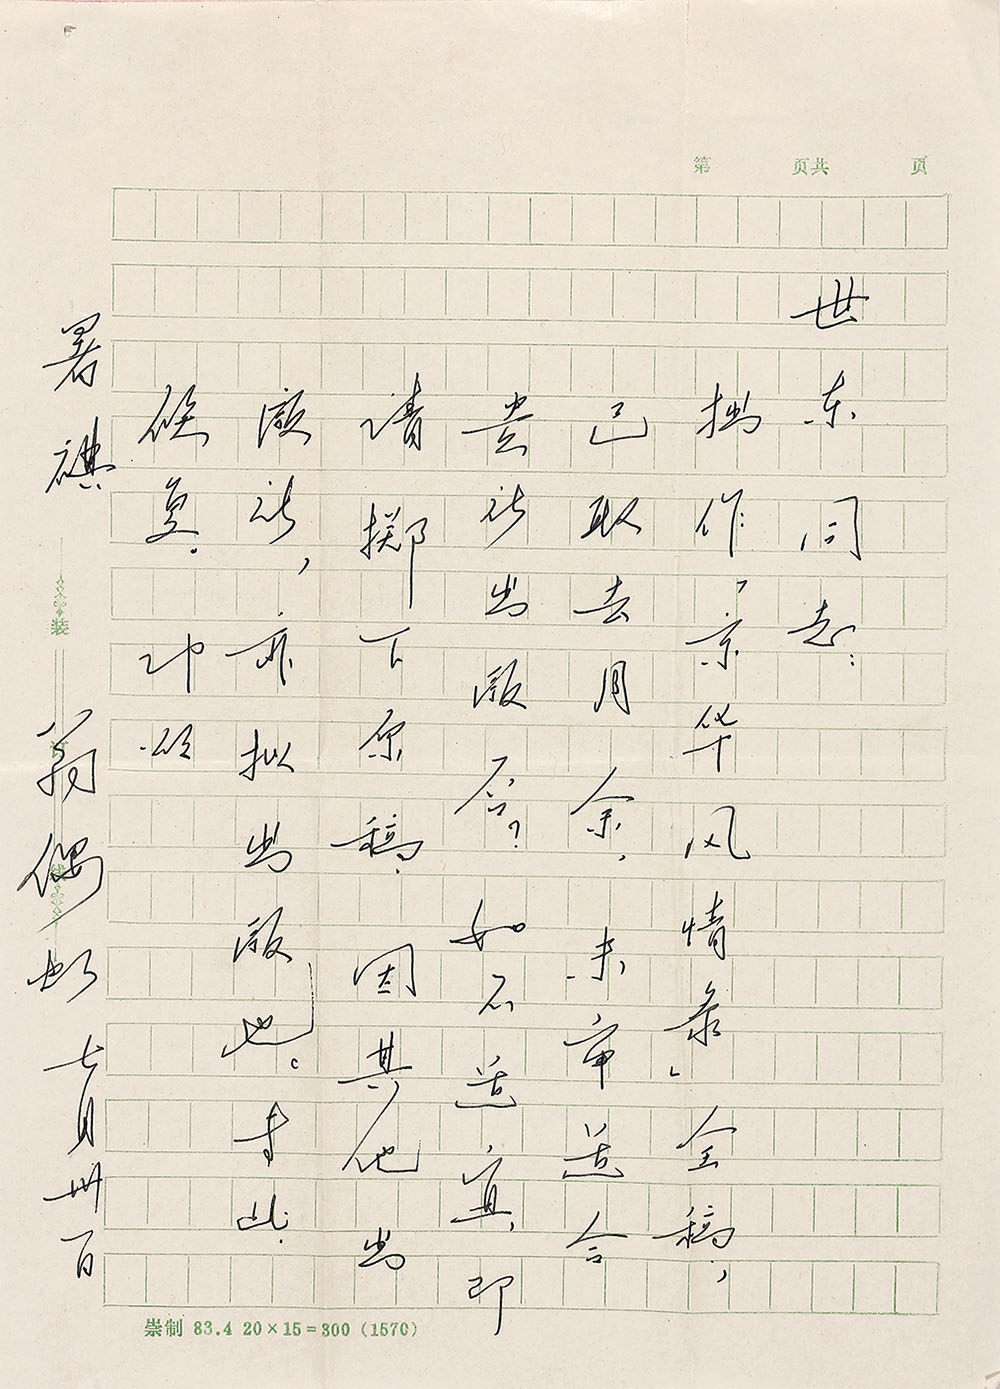 第 页共 页
世东同志：
拙作「京华风情录」全稿，
已取去月余，未审适合
贵社出版否？如不适宜，即
请掷下原稿，因其他出
版社，亦拟出版也。专此，
候复。 即颂
暑祺
翁偶虹 七月卅一日
装
崇制 83.4 20×15=300 (1570)